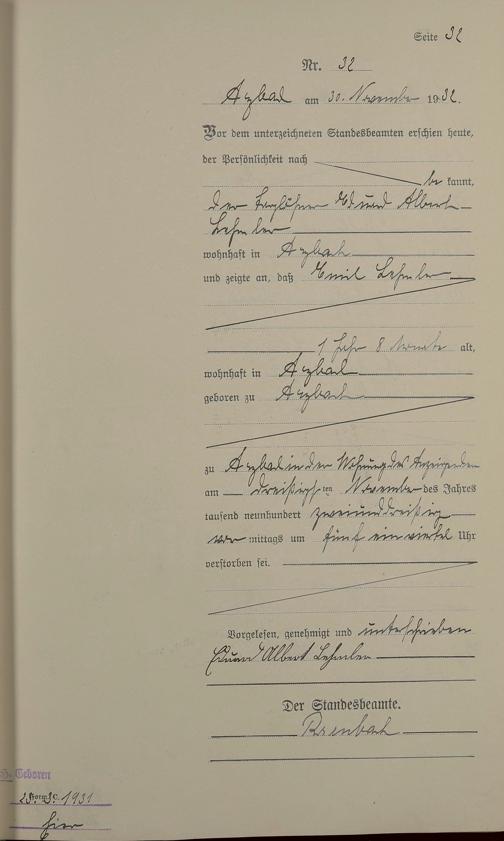 Seite 32
Nr. 32
Arzbach am 30. November 1932.
Vor dem unterzeichneten Standesbeamten erschien heute,
der Persönlichkeit nach
be kannt,
der Edmund Albert
wohnhaft in Arzbach
und zeigte an, daß Emil
1 Jahr 8 Monate alt,
wohnhaft in Arzbach
geboren zu Arzbach
zu Arzbach in der Wohnung des Anzeigenden
am dreißigsten November des Jahres
tausend neunhundert zweiunddreißig
vor mittags um fünf einviertel Uhr
verstorben sei.
Vorgelesen, genehmigt und unterschrieben
Albert
Der Standesbeamte.
Geboren
1931
hier